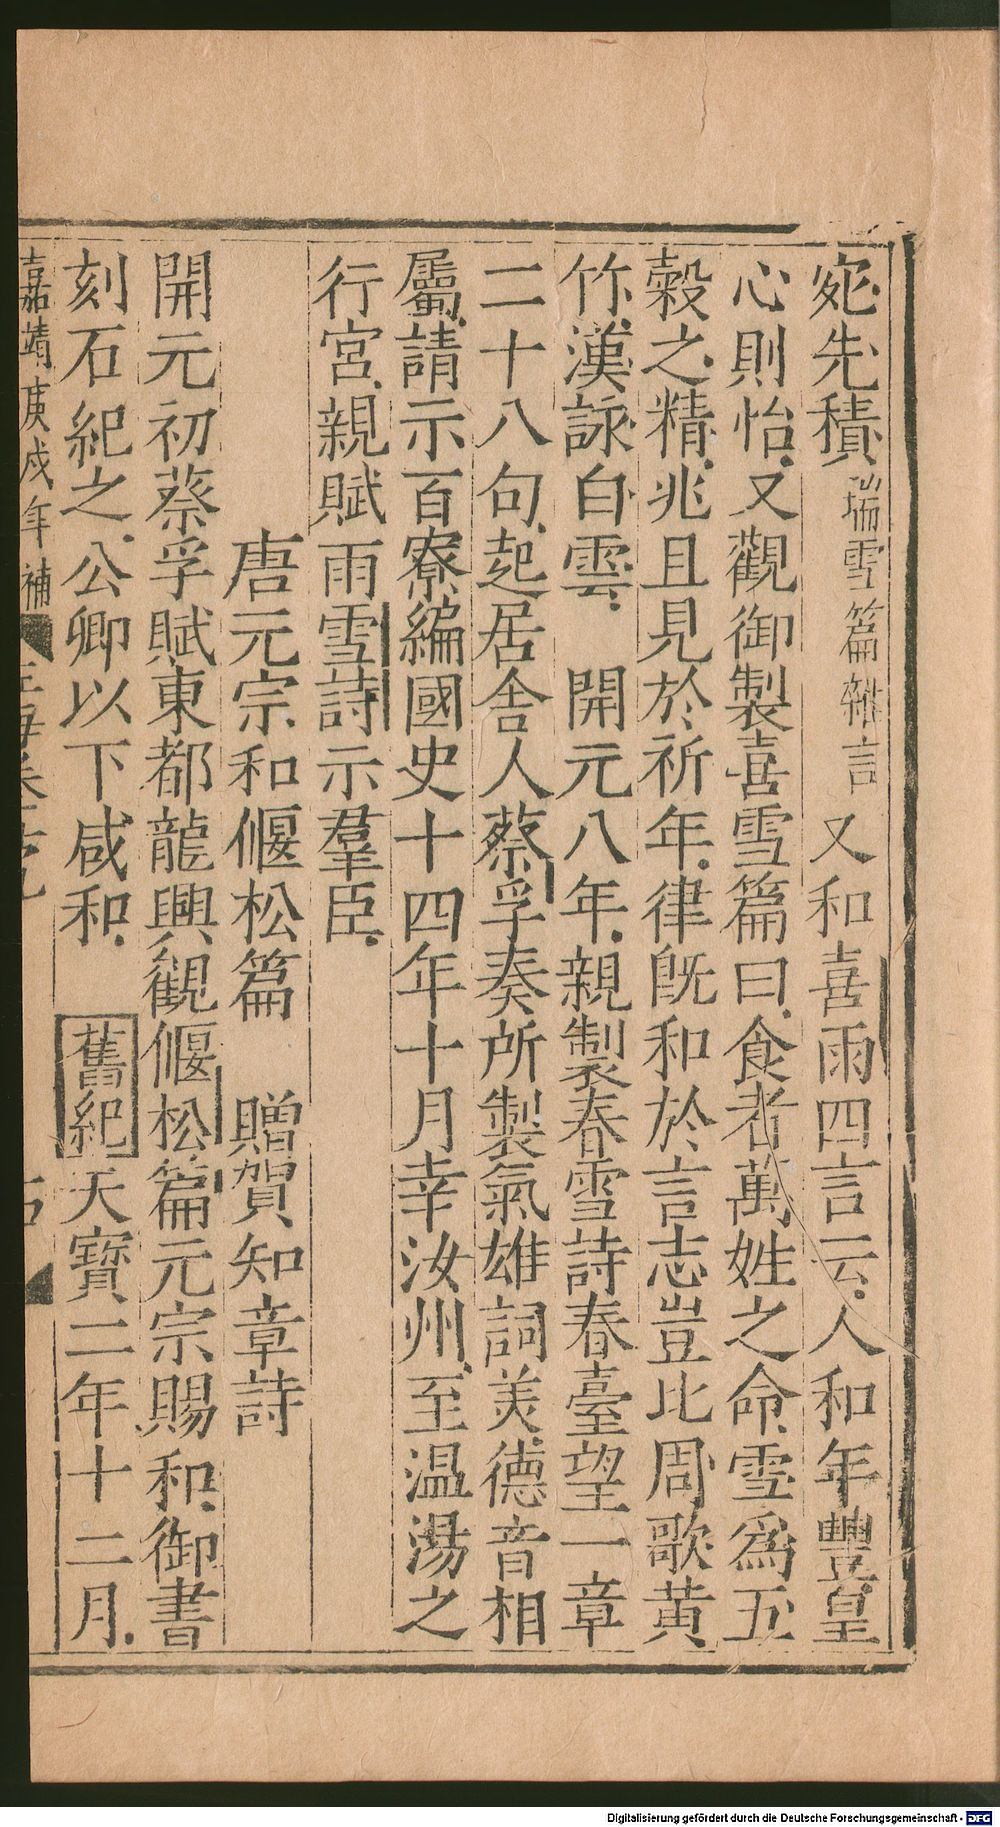 宛先積瑞雪篇雜言又和喜雨四言云人和年豐皇
心則怡又觀御製喜雪篇曰食者萬姓之命雪爲五
穀之精兆且見於祈年律旣和於言志豈比周歌黄
竹漢詠白雲　開元八年親製春雪詩春臺望一章
二十八句起居舍人蔡孚奏所製氣雄詞美德音相
屬請示百寮編國史十四年十月幸汝州至温湯之
行宮親賦雨雪詩示羣臣
唐元宗和偃松篇　贈賀知章詩
開元初蔡孚賦東都龍興觀偃松篇元宗賜和御書
刻石紀之公卿以下咸和　舊紀天寶二年十二月
嘉靖庚戌年補
Digitalisierung gefördert durch die Deutsche Forschungsgemeinschaft - DFG